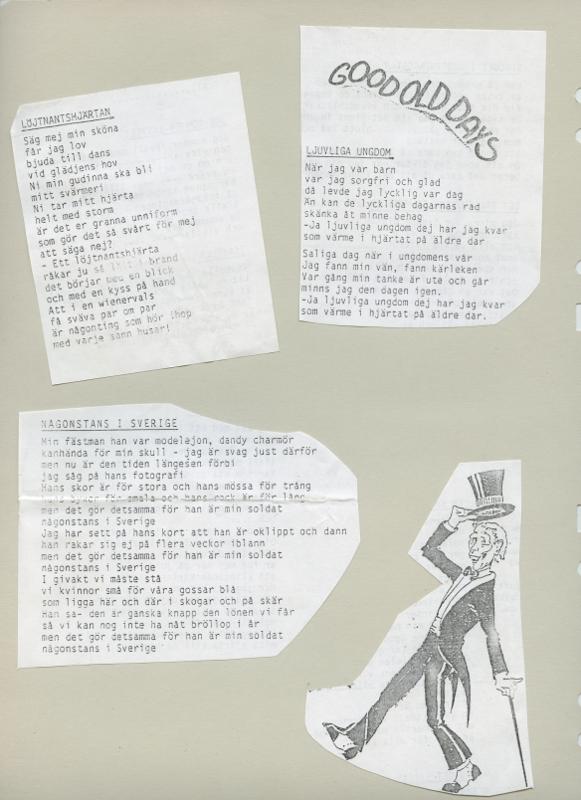 LÖJTNANTSHJÄRTAN
Säg mej min sköna
får jag lov
bjuda till dans
vid glädjens hov
Ni min gudinna ska bli
mitt svärmeri
Ni tar mitt hjärta
helt med storm
är det er granna unniform
som gör det så svårt för mej
att säga nej?
- Ett löjtnantshjärta
råkar ju så lätt i brand
det börjar med en blick
och med en kyss på hand
Att i en wienervals
få sväva par om par
är någonting som hör ihop
med varje sann husar!
GOOD OLD DAYS
LJUVLIGA UNGDOM
När jag var barn
var jag sorgfri och glad
då levde jag lycklig var dag
Än kan de lyckliga dagarnas rad
skänka åt minne behag
-Ja ljuvliga ungdom dej har jag kvar
som värme i hjärtat på äldre dar
Saliga dag när i ungdomens vår
Jag fann min vän, fann kärleken
Var gång min tanke är ute och går
minns jag den dagen igen.
-Ja ljuvliga ungdom dej har jag kvar
som värme i hjärtat på äldre dar.
NÅGONSTANS I SVERIGE
Min fästman han var modelejon, dandy charmör
kanhända för min skull - jag är svag just därför
men nu är den tiden längesen förbi
jag såg på hans fotografi
Hans skor är för stora och hans mössa för trång
hans byxor för smala och hans rock är för lång
men det gör detsamma för han är min soldat
någonstans i Sverige
Jag har sett på hans kort att han är oklippt och dann
han rakar sig ej på flera veckor iblann
men det gör detsamma för han är min soldat
någonstans i Sverige
I givakt vi måste stå
vi kvinnor små för våra gossar blå
som ligga här och där i skogar och på skär
Han sa- den är ganska knapp den lönen vi får
så vi kan nog inte ha nåt bröllop i år
men det gör detsamma för han är min soldat
någonstans i Sverige